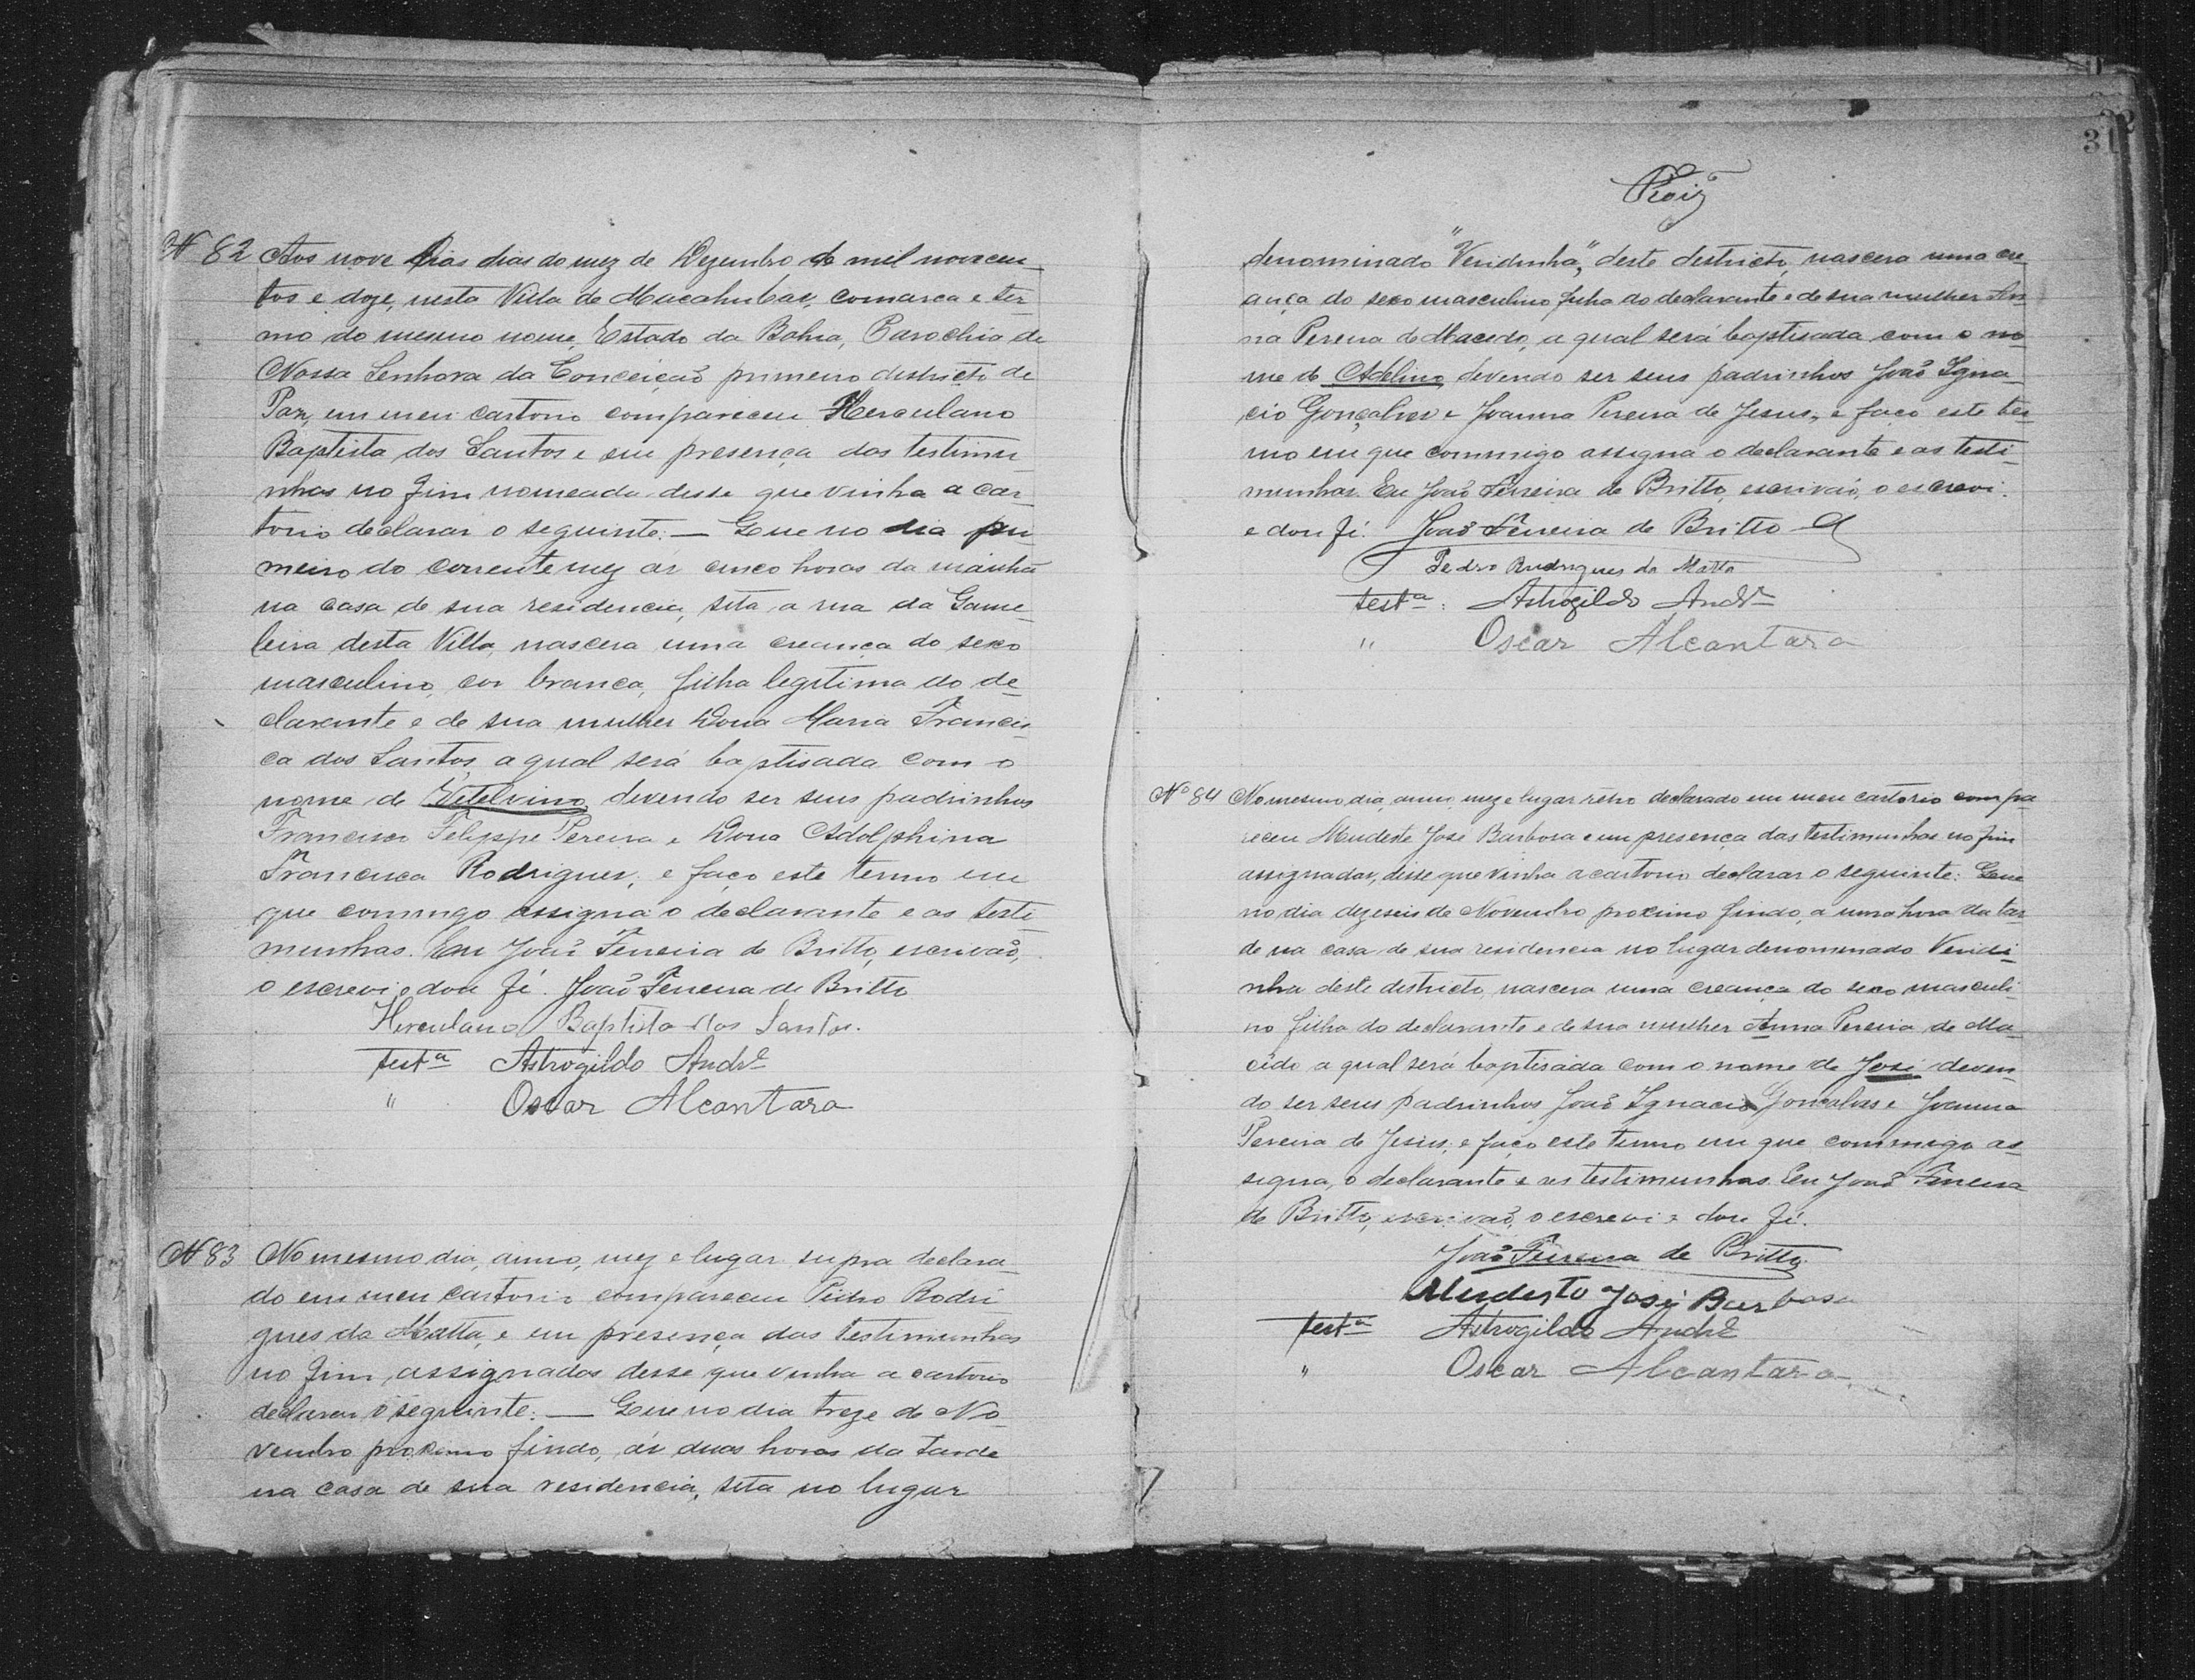 Nº 82 Aos nove dias dias do mez de Dezembro de mil novecen-
tos e doze, nesta Villa de Macahubas, comarca e ter-
mo do mesmo nome, Estado da Bahia, Parochia de
Nossa Senhora da Conceição primeiro districto de
Paz, em meu cartorio compareceu Herculano
Baptista dos Santos e em presença das testimu-
nhas no fim nomeada disse que vinha a car-
torio declarar o seguinte: — Que no dia pri
meiro do corrente mez ás cinco horas da manhã
na casa de sua residencia, sita a rua da Game-
leira desta Villa, nascera uma creança do sexo
masculino, cor branca, filha legitima do de-
clarante e de sua mulher Dona Maria Francis-
ca dos Santos, a qual será baptisada com o
nome de Vitelvino, devendo ser seus padrinhos
Francisco Felippe Pereira e Dona Adolphina
Francisca Rodrigues, e faço este termo em
que comigo assigna o declarante e as testi
munhas. Eu João Ferreira de Britto, escrivão,
o escrevi e dou fé. João Ferreira de Britto
Herculano Baptista dos Santos.
testª Astrogildo André
" Oscar Alcantara
Nº 83 No mesmo dia, anno, mez e lugar supra declara-
do em meu cartorio compareceu Pedro Rodri
gues da Matta, e em presença das testimunhas
no fim assignadas disse que vinha a cartorio
declarar o seguinte: — Que no dia treze de No-
vembro proximo findo, ás duas horas da tarde
na casa de sua residencia, sita no lugar
31
denominado "Veridinha", deste districto, nascera uma cre-
ança do sexo masculino filha do declarante e de sua mulher An-
na Pereira de Macedo, a qual será baptisada com o no-
me de Adelino, devendo ser seus padrinhos João Igna-
cio Gonçalves e Joanna Pereira de Jesus, e faço este ter-
mo em que commigo assigna o declarante e as testi-
munhas. Eu João Ferreira de Britto, escrivão, o escrevi.
e dou fé. João Ferreira de Britto
Pedro Rudrigues da Matta
testª: Astrogildo André
" Oscar Alcantara
Nº 84 No mesmo dia, anno, mez e lugar retro declarado em meu cartorio compa
receu Mudesto José Barbosa e em presença das testimunhas no fim
assignadas, disse que vinha a cartorio declarar o seguinte: Que
no dia dezeseis de Novembro proximo findo, a uma hora da tar-
de na casa de sua residencia no lugar denominado Veridi-
nha deste districto, nascera uma creança do sexo masculi-
no filha do declarante e de sua mulher Anna Pereira de Ma-
cêdo a qual será baptisada com o nome de José deven-
do ser seus padrinhos João Ignacio Gonçalves e Joanna
Pereira de Jesus, e faço este termo em que commigo as-
signa, o declarante e as testimunhas. Eu João Ferreira
de Britto, escrivão, o escrevi e dou fé.
João Ferreira de Britto
Mudesto José Barbosa
testª Astrogildo André
" Oscar Alcantara